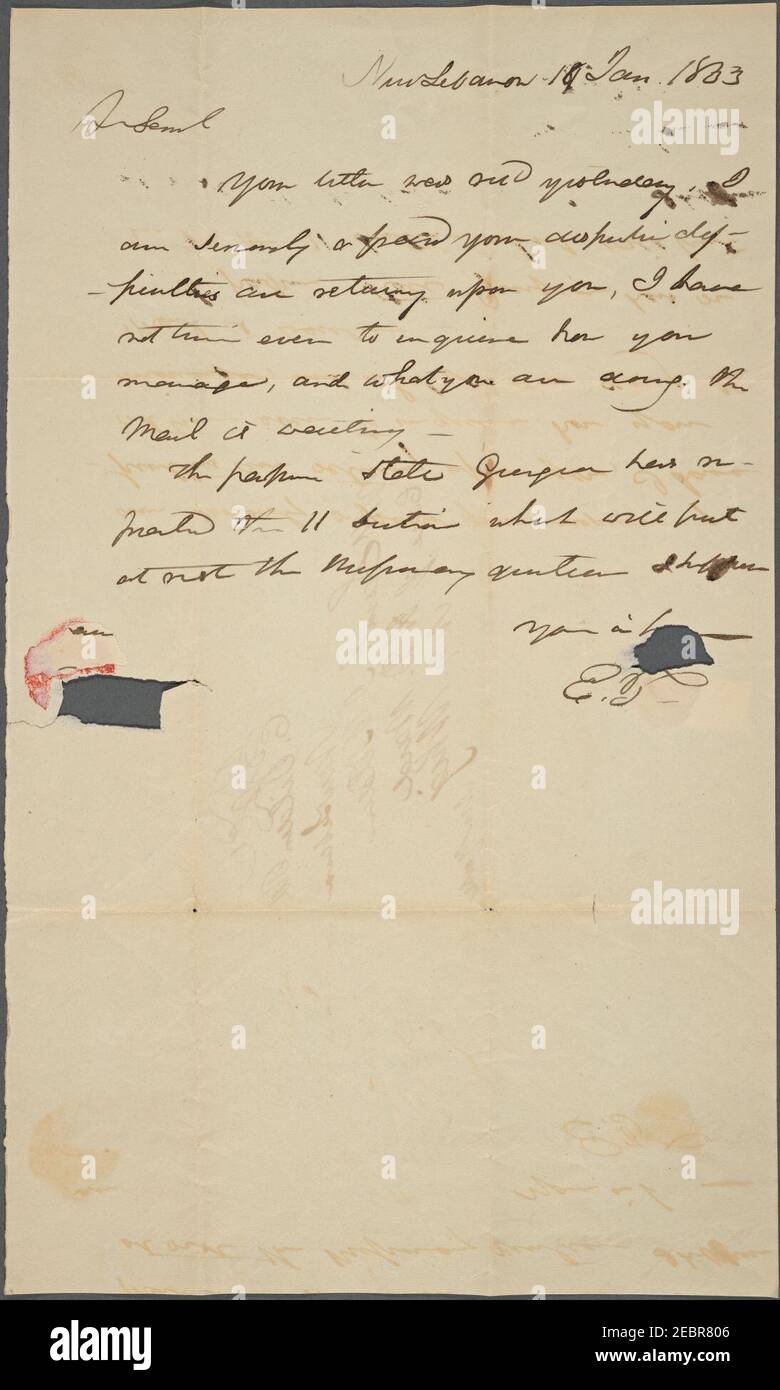 New Lebanon 10 Jan. 1833
Dr Saml
Your letter was recd yesterday. I
am seriously afraid your dispeptic dif-
-ficulties are returng upon you, I have
not time even to inquire how you
manage, and what you are doing. The
Mail is waiting –
The papers state Georgia has re-
pealed the 11 Section which will put
at rest the Missionary question I hope
you
E.T.
alamy
Image ID: 2EBR806
www.alamy.com